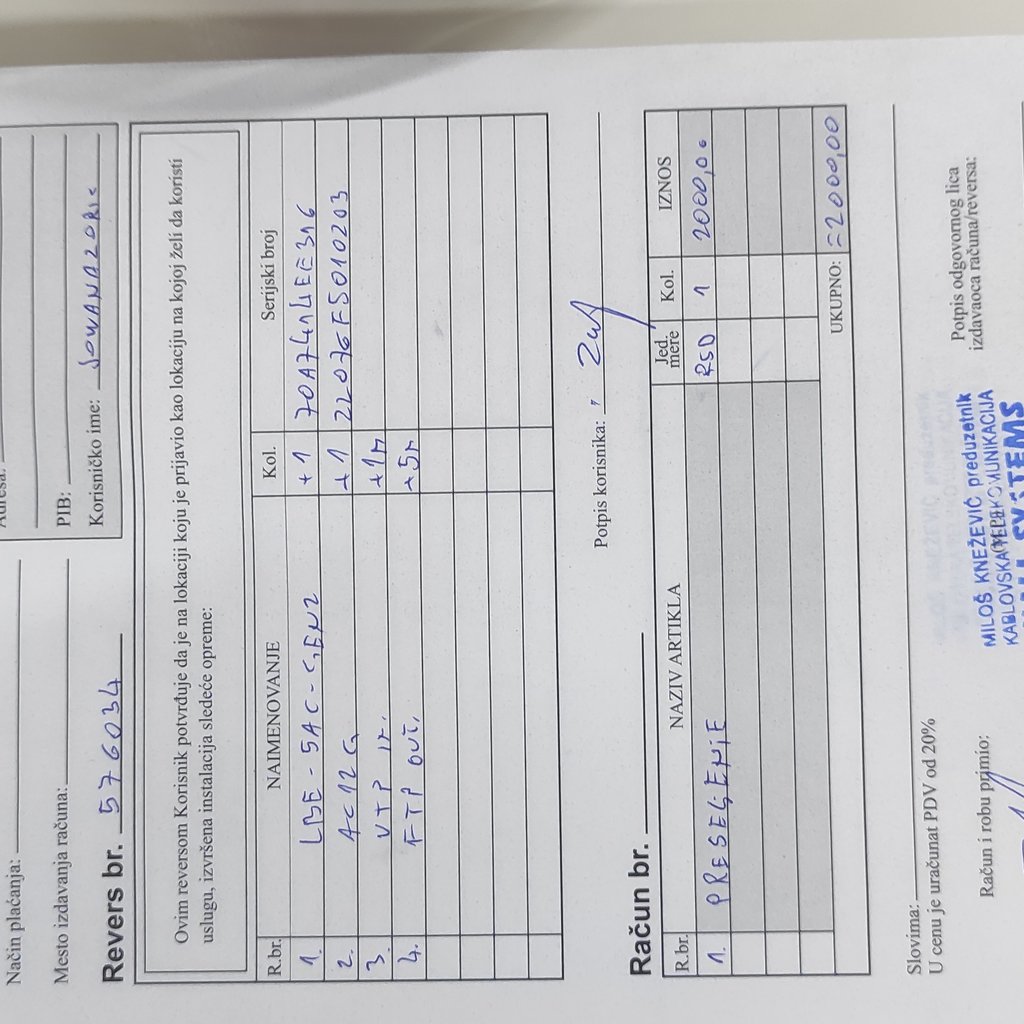 Način plaćanja:
Mesto izdavanja računa:
PIB:
Korisničko ime: JOWANAZORIC
Revers br. 576034
Ovim reversom Korisnik potvrđuje da je na lokaciji koju je prijavio kao lokaciju na kojoj želi da koristi
uslugu, izvršena instalacija sledeće opreme:
R.br. NAIMENOVANJE Kol. Serijski broj
1. LBE-5AC-GEN2 +1 70A7414EE316
2. AC12G +1 22076F5010203
3. UTP in. +1m
4. FTP out. +5m
Potpis korisnika:
Račun br.
R.br. NAZIV ARTIKLA Jed. mere Kol. IZNOS
1. PRESEGENJE RSD 1 2000,00
UKUPNO: =2000,00
Slovima:
U cenu je uračunat PDV od 20%
Račun i robu primio:
Potpis odgovornog lica
izdavaoca računa/reversa:
MILOŠ KNEŽEVIĆ preduzetnik
KABLOVSKA TELEKOMUNIKACIJA
SYSTEMS